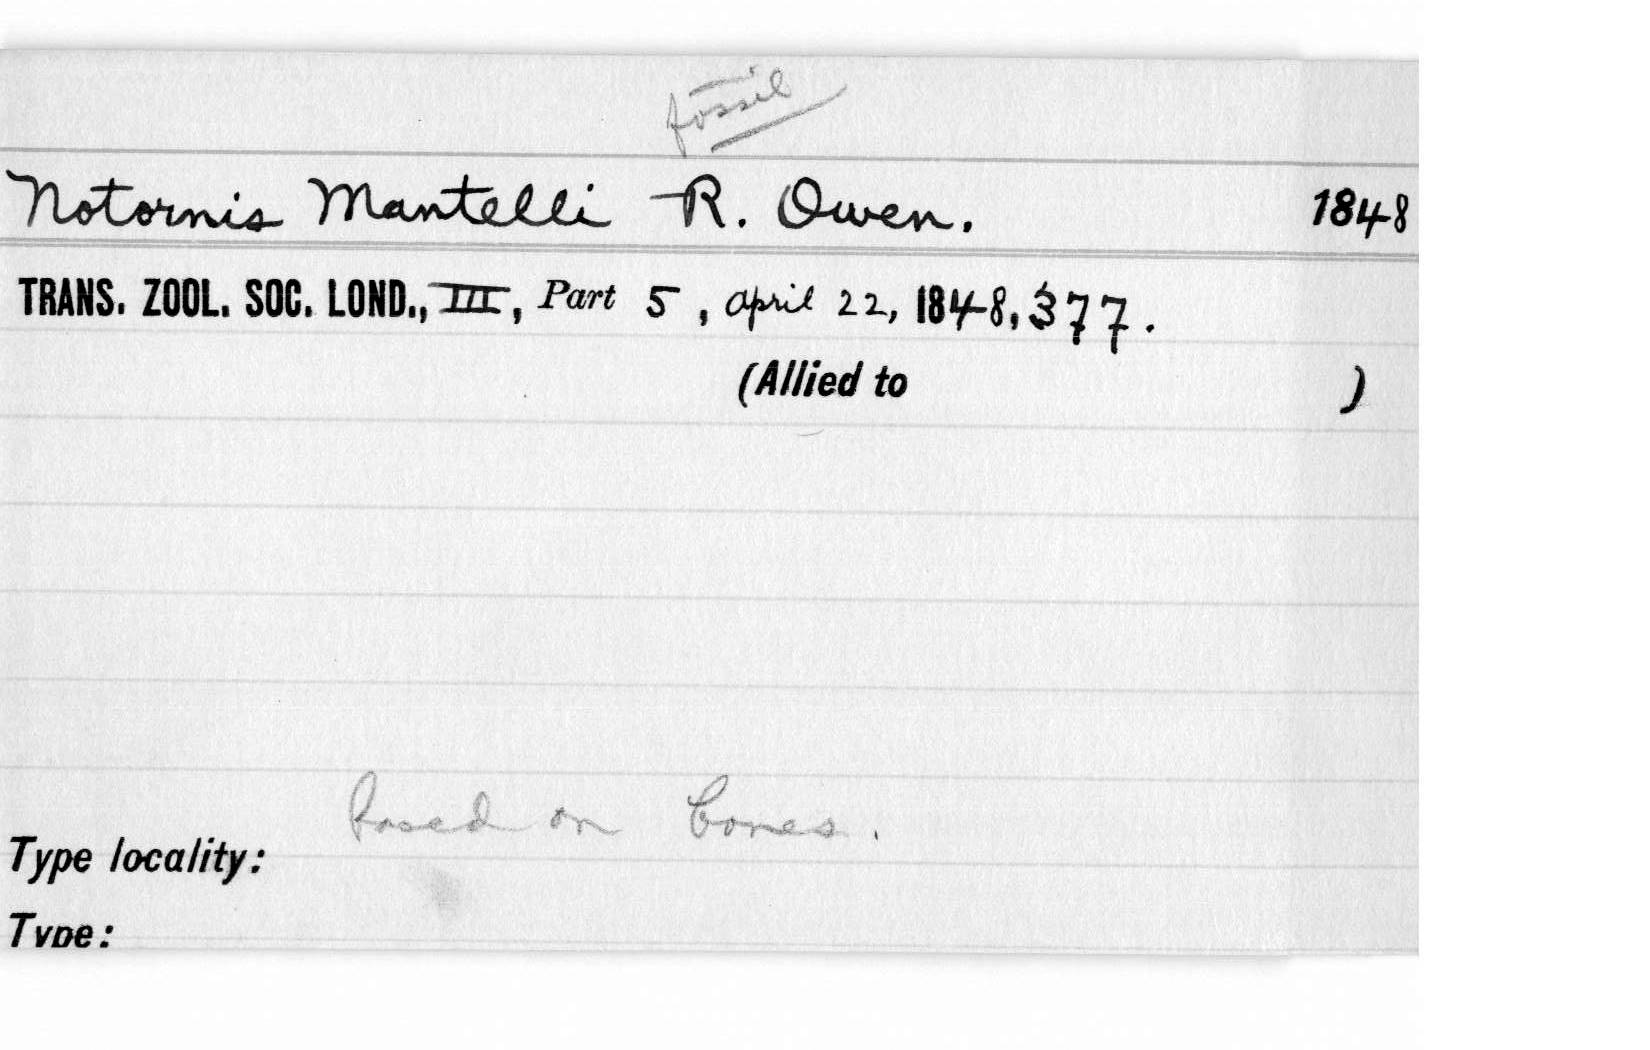 fossil
Notornis Mantelli R. Owen. 1848
TRANS. ZOOL. SOC. LOND., III, Part 5, April 22, 1848, 377.
(Allied to )
Based on bones.
Type locality:
Type: